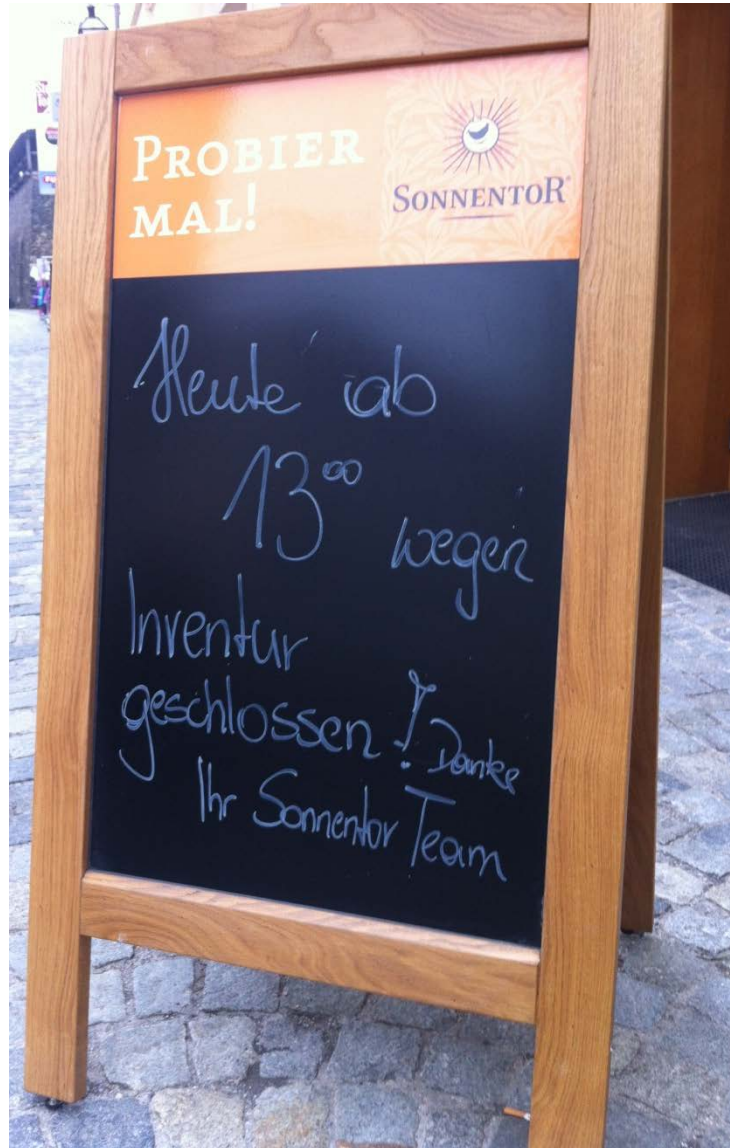 PROBIER
MAL!
SONNENTOR®
Heute ab
13⁰⁰ wegen
Inventur
geschlossen! Danke
Ihr Sonnentor Team